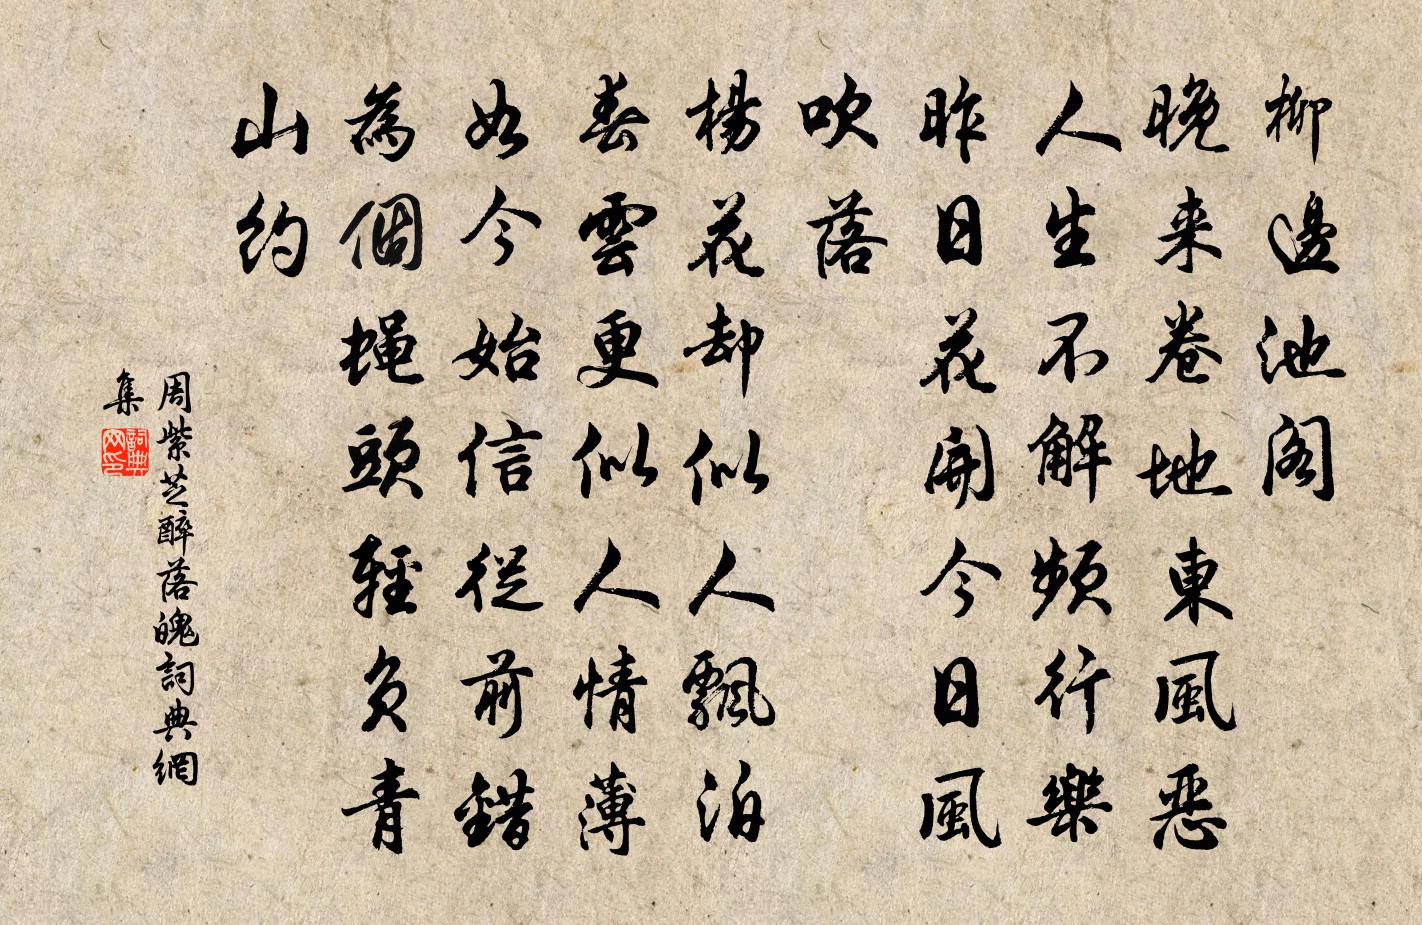 柳邊池閣
晚来卷地東風惡
人生不解頻行樂
昨日花開今日風
吹落
楊花却似人飄泊
春雲更似人情薄
如今始信從前錯
為個蝇頭輕負青
山約
周紫芝醉落魄詞典網
集
詞典网印